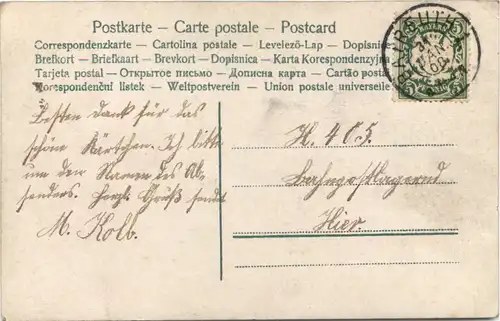 Postkarte – Carte postale – Postcard
Correspondenzkarte – Cartolina postale – Levelező-Lap – Dopisnice
Brefkort – Briefkaart – Brevkort – Dopisnica – Karta Korespondenzyjna
Tarjeta postal – Открытое письмо – Дописна карта – Cartão postal
Korespondenční lístek – Weltpostverein – Union postale universelle
BAYREUTH
5 5
5 5
Besten Dank für das
schöne Kärtchen. Ich bitte
um den Namen des Ab-
senders. Herzl. Grüße sendet
M. Kolb.
H. 405.
Bahnpostlagernd
Hier.